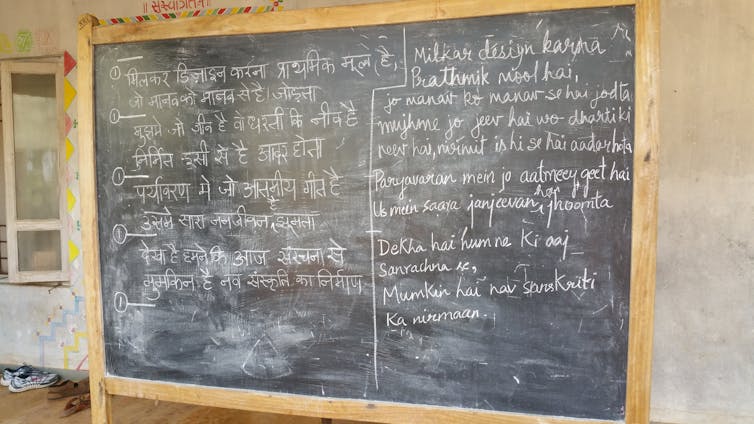 ॥ सुस्वागतम् ॥
① मिलकर डिज़ाइन करना प्राथमिक मूल है,
जो मानव को मानव से है। जोड़ता
① मुझमे जो जीव है वो धरती कि नीव है
निर्मित इसी से है आदर होता
① पर्यावरण मे जो आत्मीय गीत है
उसमे सारा जनजीवन है झूमता
①
देखा है हमने कि आज संरचना से
मुमकिन है नव संस्कृति का निर्माण
①
Milkar design karna
Prathmik mool hai,
jo manav ko manav se hai jodta
mujhme jo jeev hai wo dharti ki
neev hai, nirmit is hi se hai aadar hota
Paryavaran mein jo aatmeey geet hai
Us mein saara janjeevan hai jhoomta
Dekha hai humne Ki aaj
Sanrachna se,
Mumkin hai nav Sanskriti
Ka nirmaan.